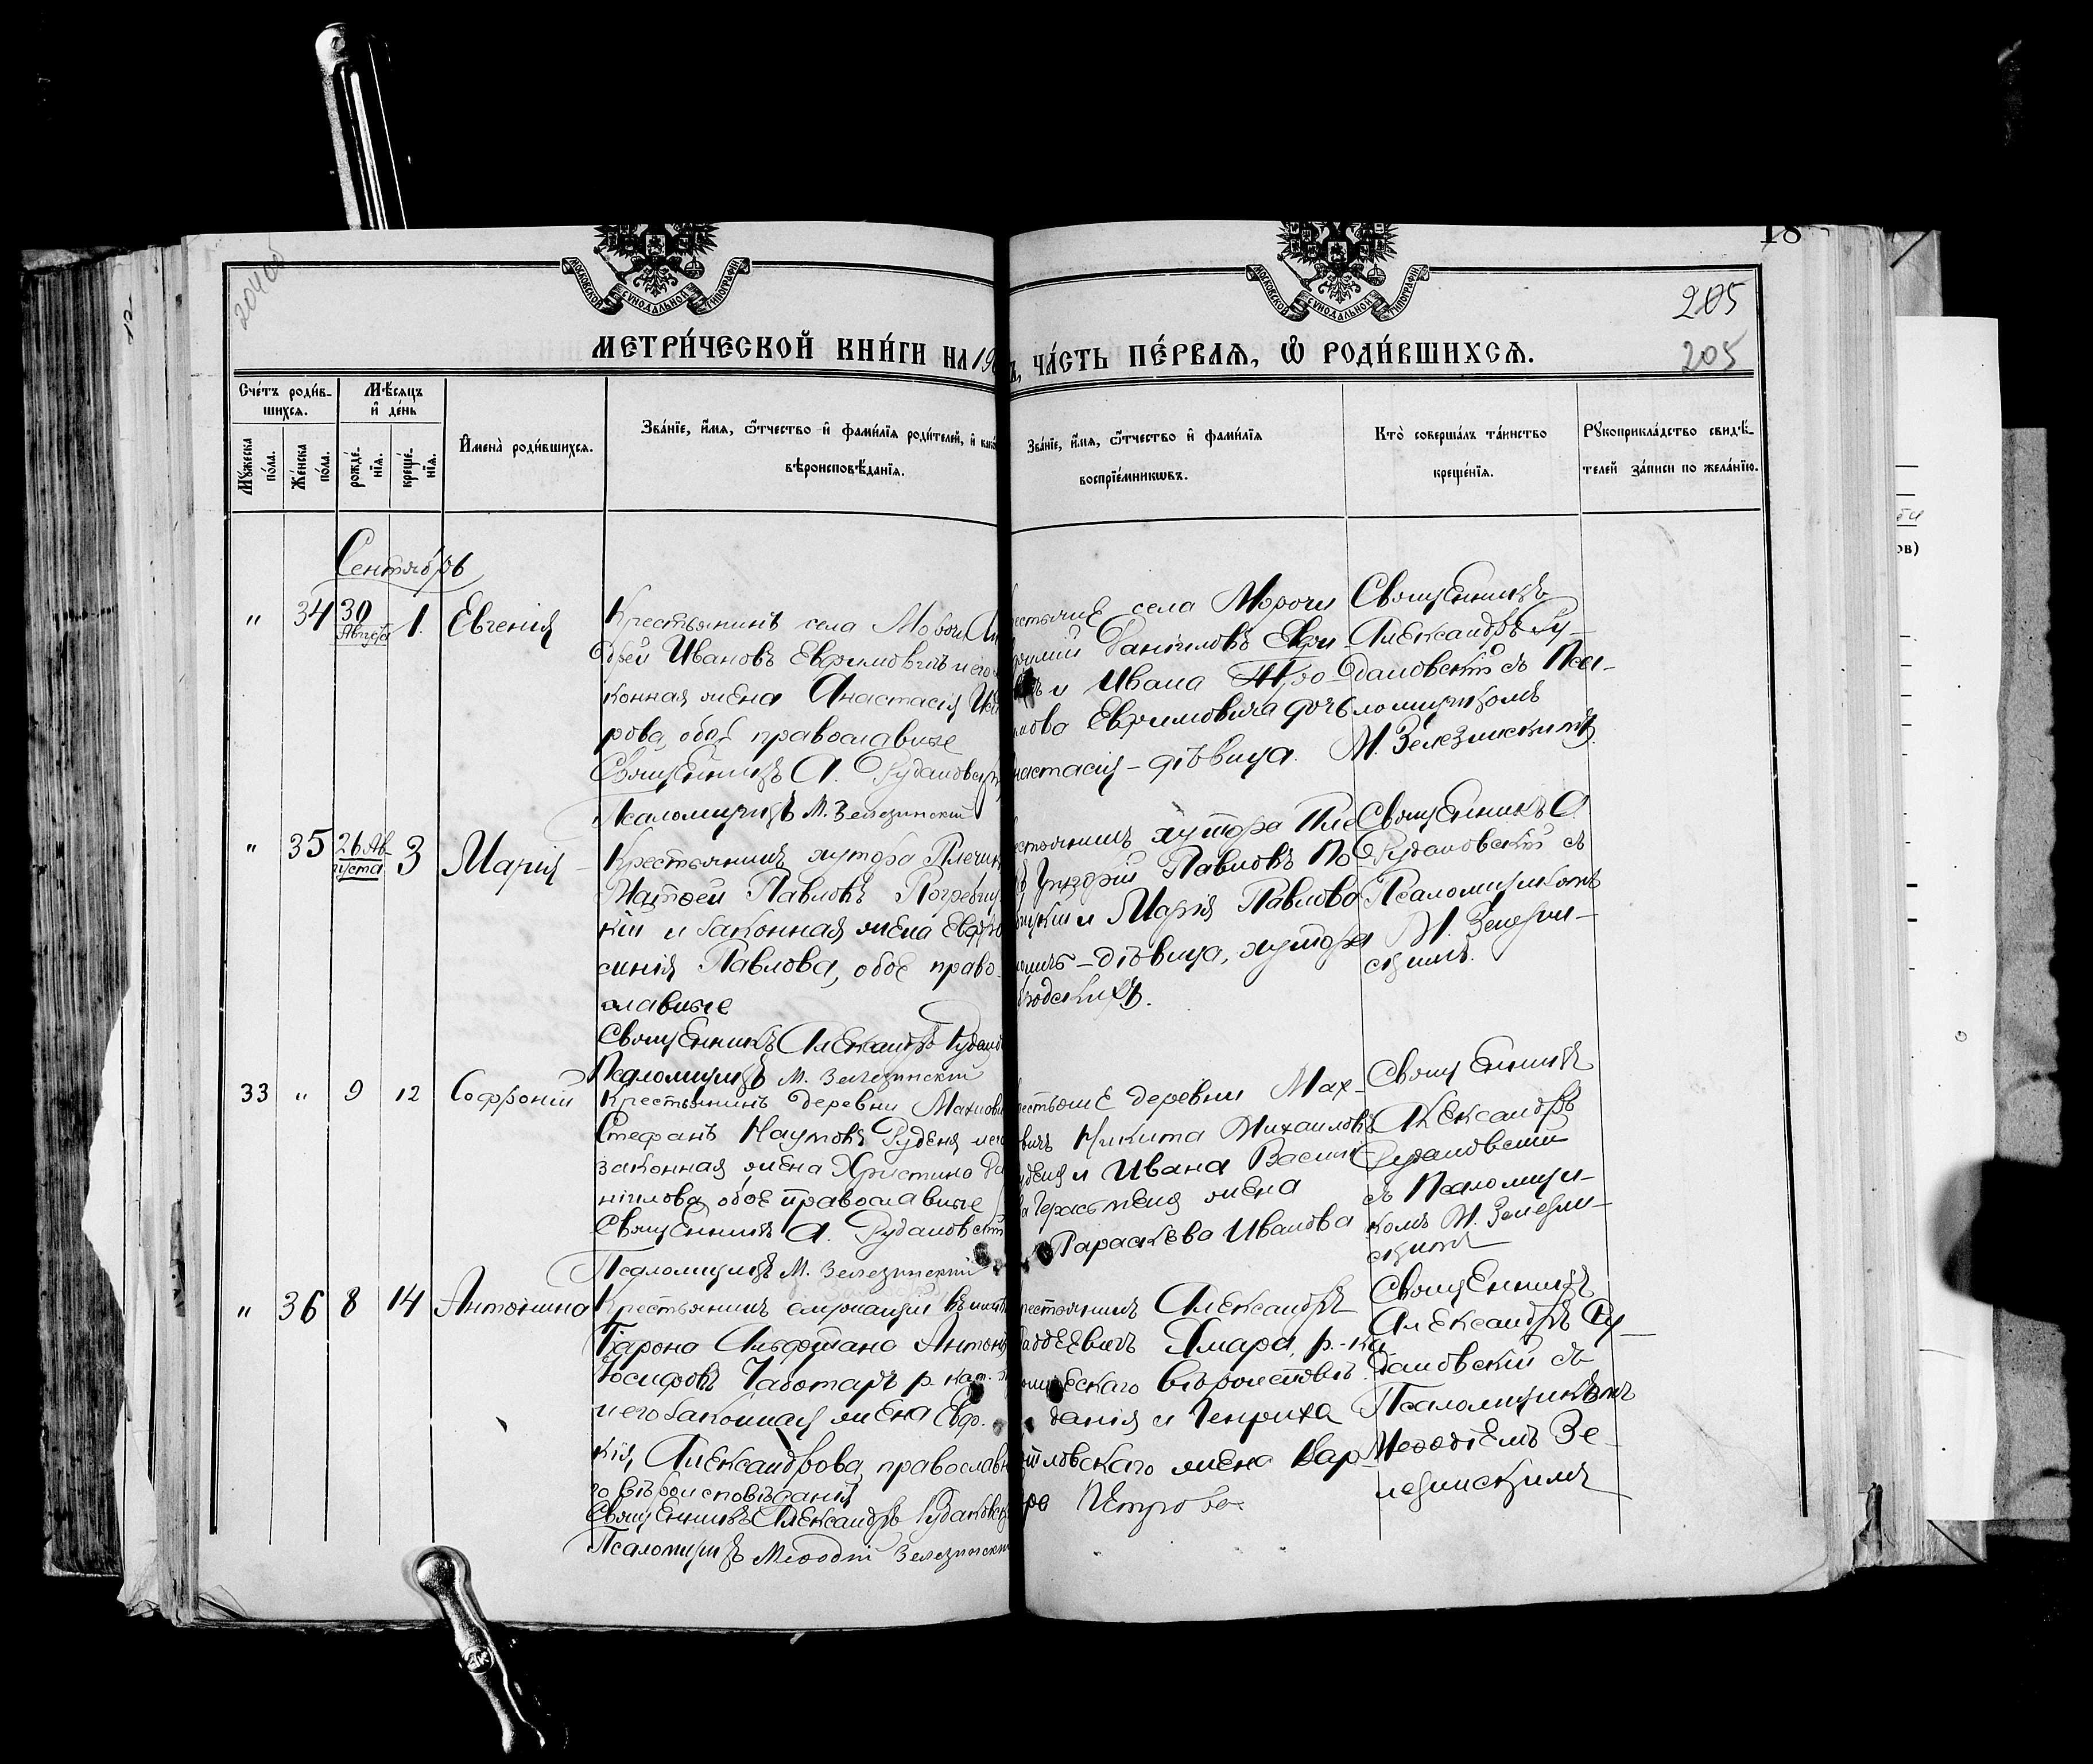 МОСКОВСКОЙ СУНОДАЛЬНОЙ ТИПОГРАФІИ
МОСКОВСКОЙ СУНОДАЛЬНОЙ ТИПОГРАФІИ
18
205
205
МЕТРИ́ЧЕСКОЙ КНИ́ГИ НА 19
ЧА́СТЬ ПЕ́РВАЯ, Ѡ РОДИ́ВШИХСЯ.
Сче́тъ роди́в-
шихся.
Мѣ́сяцъ
и де́нь
Му́жеска
по́ла.
Же́нска
по́ла.
рожде́-
нїя.
креще́-
нїя.
Имена̀ роди́вшихся.
Зва́нїе, и́мя, ѻ́тчество и фами́лїя роди́телей, и како
вѣроисповѣ́данїя.
Зва́нїе, и́мя, ѻ́тчество и фами́лїя
воспрїе́мникѡвъ.
Кто̀ соверша́лъ та́инство
креще́нїя.
Рукоприкла́дство свидѣ́-
телей за́писи по жела́нїю.
Сентябрь
" 34 30 Августа 1. Евгенія
Крестьянинъ села Морочи Ан
дрей Ивановъ Ефимовичъ и его
конная жена Анастасія
рова, обоє православные
Священникъ А. Рудановскій
Псаломщикъ М. Зелезинскій
села Морочи
Даніиловъ Ефи-
и Ивана Тро-
мова Ефимовича дочь
настасія - дѣвица.
Священникъ
Александръ Ру-
дановскій съ Пса-
ломщикомъ
М. Зелезинскимъ
" 35 26 Ав-
густа 3 Марія
Крестьянинъ хутора Плечин
Матѳей Павловъ Погребиц
кій и законная жена Евфро
синія Павлова, обое право-
славные
Священникъ Александръ Рудано
Псаломщикъ М. Зелезинскій
стьянинъ хутора Пле
Григорій Павловъ По
бицкій и Марія Павлова
дѣвица, хутора
бродскихъ.
Священникъ А
Рудановскій съ
Псаломщикомъ
М. Зелезин-
скимъ.
33 " 9 12 Софроній
Крестьянинъ деревни Махнови
Стефанъ Наумовъ Руденя и его
законная жена Христина Да
ніилова, обое православные
Священникъ А. Рудановскій
Псаломщикъ М. Зелезинскій
стьяне деревни Мах-
вичъ Никита Михаиловъ
уденя и Ивана Васил
жена
Параскева Иванова
Священникъ
Александръ
Рудановскій
съ Псаломщи-
комъ М. Зелезин-
скимъ
" 36 8 14 Антонина
Крестьянинъ служащій въ имѣн
Барона Антон
Юсифовъ Чаботаръ р. кат.
и его законная жена Евдо-
кія Александрова, православн
го вѣроисповѣданія
Священникъ Александръ Рудановск
Псаломщикъ Меѳодій Зелезинскій
рестьянинъ Александръ
аддеевичъ Ямара, р.-ка
ческаго вѣроисповѣ-
данія и Генриха
ловскаго жена Вар-
ра Петрова
Священникъ
Александръ Ру-
дановскій съ
Псаломщикомъ
Меѳодіемъ Зе-
лезинскимъ